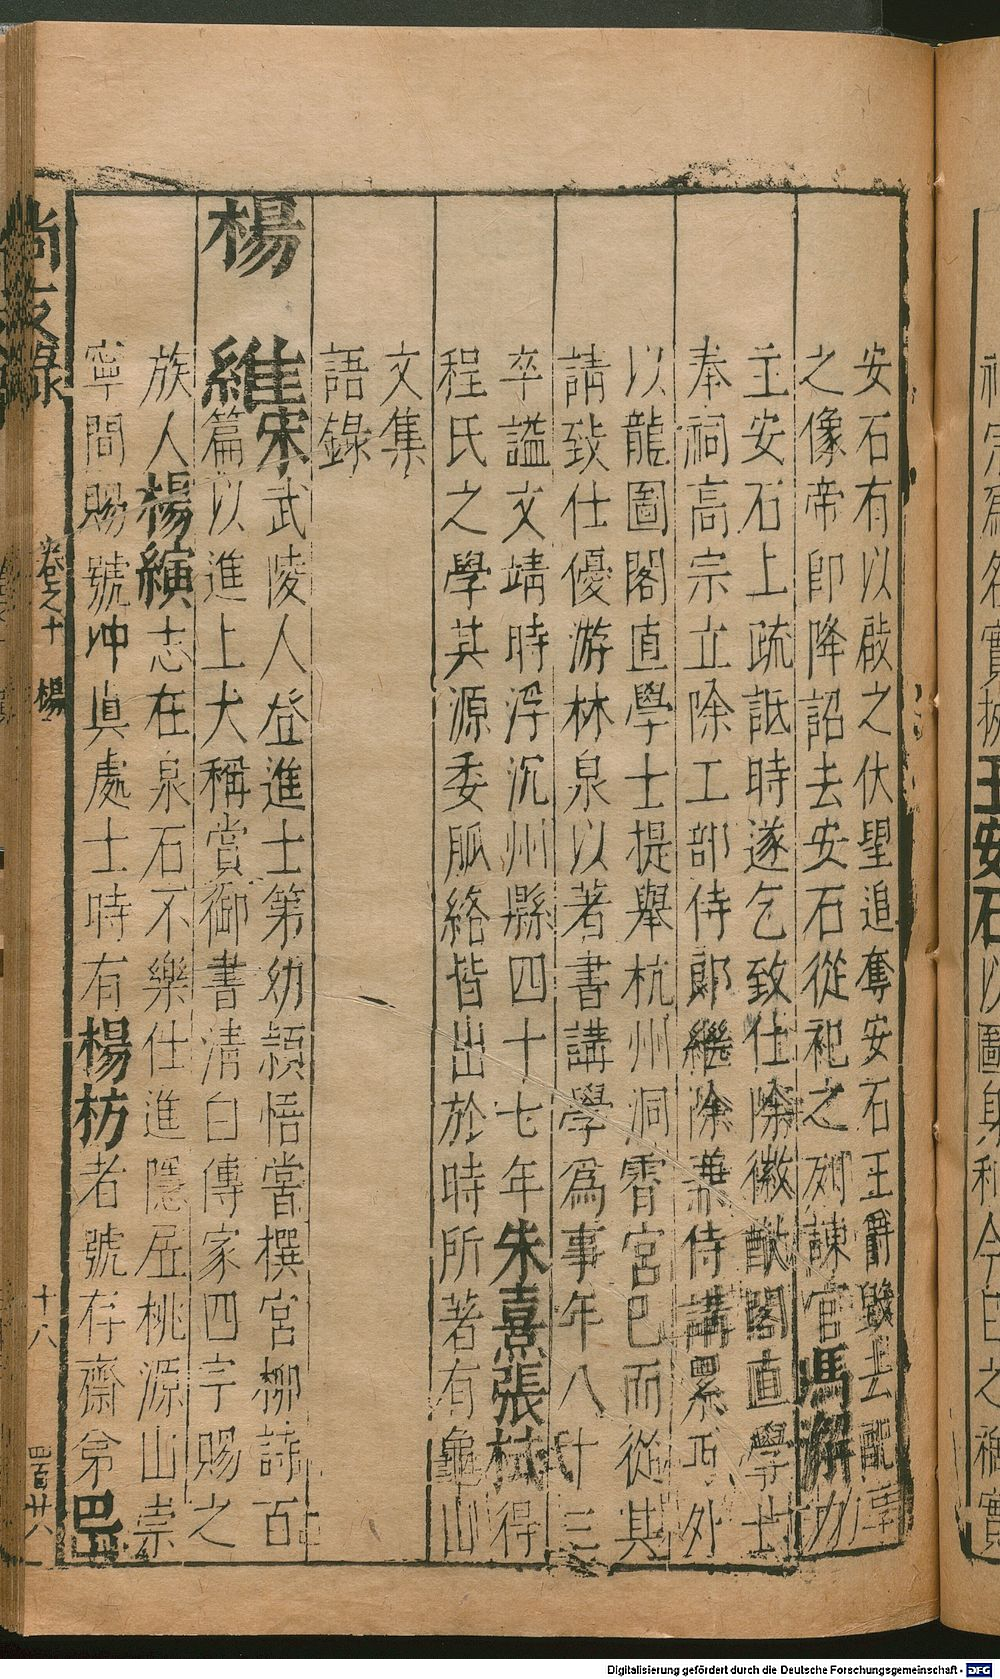 安石有以啟之伏望追奪安石王爵毀去配享
之像帝卽降詔去安石從祀之列諫官馮澥力
主安石上疏詆時遂乞致仕除徽猷閣直學士
奉祠高宗立除工部侍郎繼除兼侍講累丐外
以龍圖閣直學士提舉杭州洞霄宮已而從其
請致仕優游林泉以著書講學爲事年八十三
卒謚文靖時浮沉州縣四十七年朱熹張栻得
程氏之學其源委脈絡皆出於時所著有龜山
文集
語錄
楊維宋武陵人登進士第幼穎悟嘗撰宮柳詩百
篇以進上大稱賞御書清白傳家四字賜之
族人楊縯志在泉石不樂仕進隱居桃源山崇
寧間賜號冲眞處士時有楊枋者號存齋弟
尚友錄 卷之十 楊 十八 四百廿八
王安石以圖
之